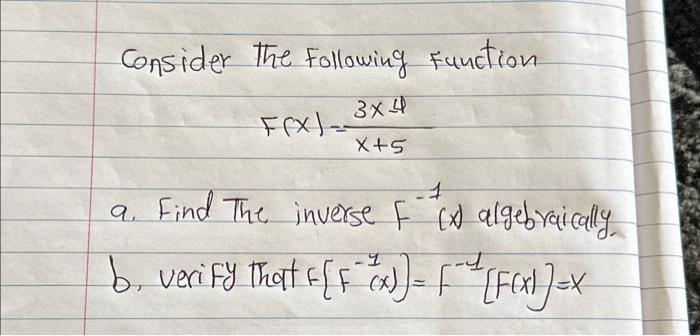 Consider The Following Function
F(x) = \frac{3x-4}{x+5}
a. Find The inverse F^{-1}(x) algebraically.
b, verify That F[F^{-1}(x)] = F^{-1}[F(x)] = x